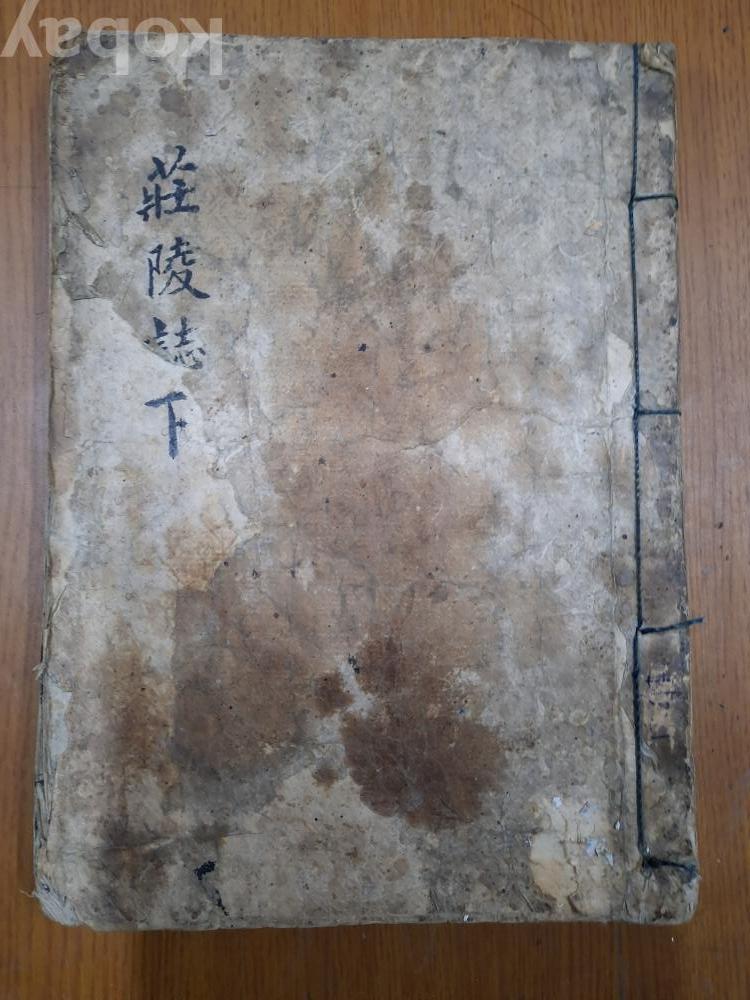 莊陵誌下
Kobay